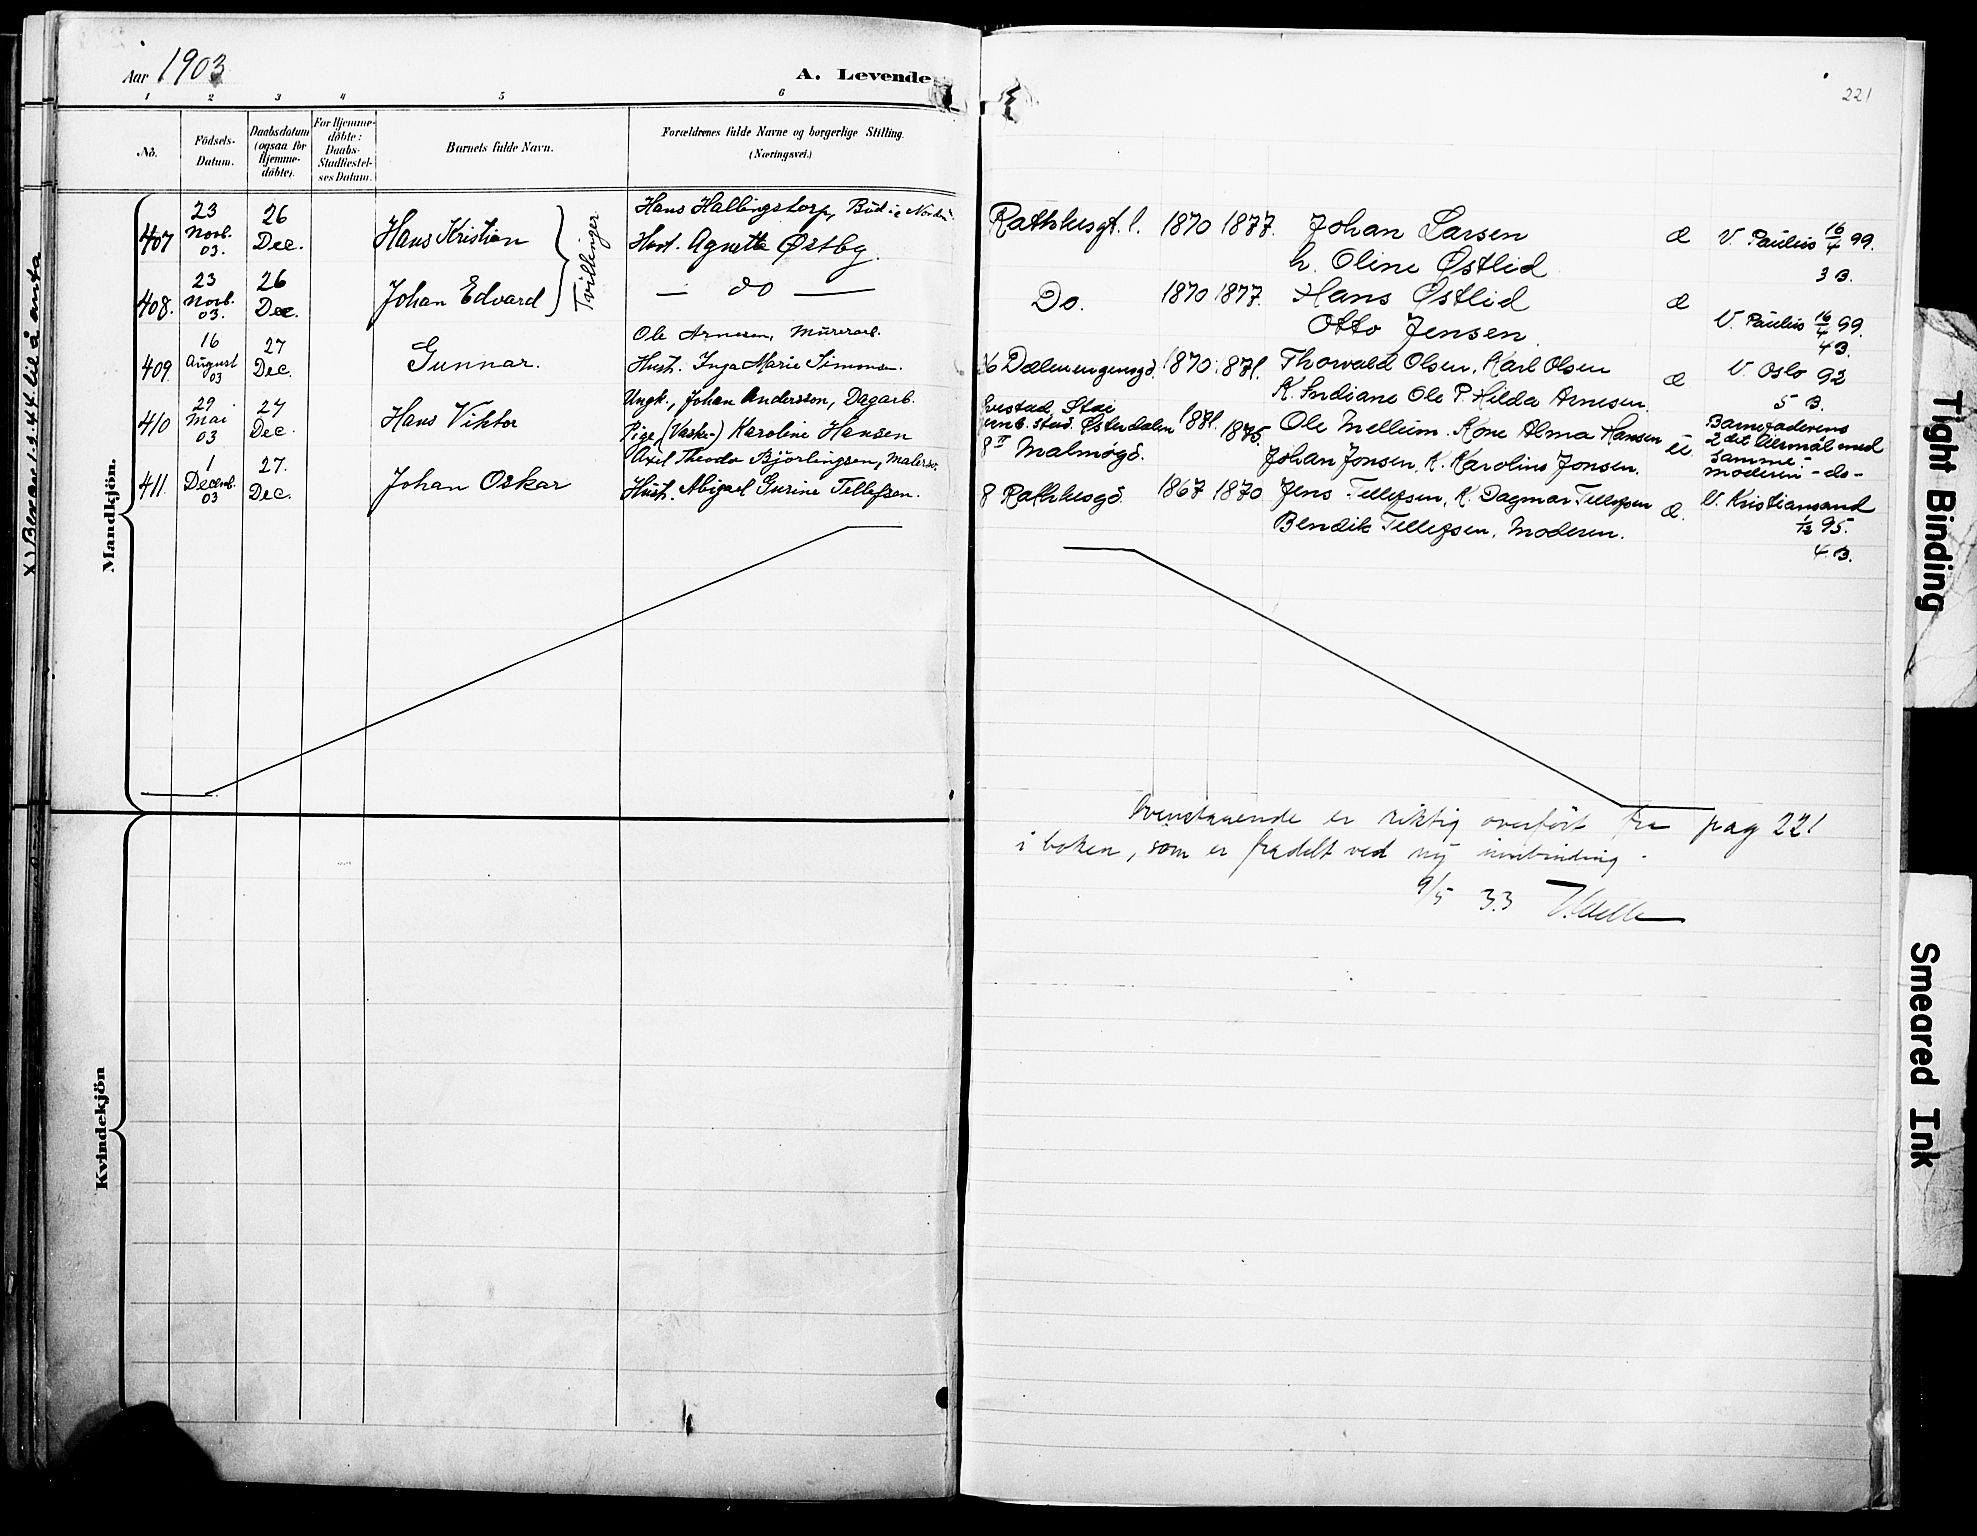 Aar 1903
A. Levende
221
1 2 3 4 5 6
No.
Födsels-
Datum.
Daabsdatum
(ogsaa for
Hjemme-
döbte).
For Hjemme-
döbte:
Daabs-
Stadfæstel-
ses Datum.
Barnets fulde Navn.
Forældrenes fulde Navne og borgerlige Stilling.
(Næringsvei.)
Mandkjön.
407 23 Novb. 03. 26 Dec. Hans Kristian
Tvillinger
Hans Hallingstorp, Bud
Hust. Agnette Østby.
Rathhusgt. 1. 1870 1877. Johan Larsen
h. Oline Østlid
æ V. Paulus 16/4 99.
3 B.
408. 23 Novb. 03. 26 Dec. Johan Edvard
— do —
Do. 1870 1877. Hans Østlid
Otto Jensen.
æ V. Paulus 16/4 99.
4 B.
409 16 August 03 27 Dec. Gunnar.
Ole Arnesen, Murerarb.
Hust. Inga Marie Simmon.
Dælenengengd. 1870. 1871. Thorvald Olsen, Karl Olsen
K. Indiane Ole P. Hilda Arnesen.
æ V Oslo 92
5 B.
410 29 Mai 03 27 Dec. Hans Viktor
Ungk., Johan Andersson, Dagarb.
Pige (Vaske-) Karoline Hansen
Stai
Østerdalen 1871. 1875.
8 II Malmøgd.
Ole Melleim. Kone Alma Hansen
Johan Jonsen, K. Karolius Jonsen.
u Barnefaderens
2det leiermål med
samme.
moderen - do -
411. 1 Decemb. 03 27. Dec. Johan Oskar
Axel Theodor Björlingsen, Malersv.
Hust. Abigael Gurine Tellefsen.
8 Rathhusgd. 1867 1870 Jens Tellefsen, K. Dagmar Tellefsen
Bendik Tellefsen, Moderen.
æ. V. Kristiansand
1/12 95.
4 B.
Ovenstaaende er riktig overført fra pag 221
i boken, som er fradelt ved ny innbinding.
9/5 33
Kvindekjön
Tight Binding
Smeared Ink